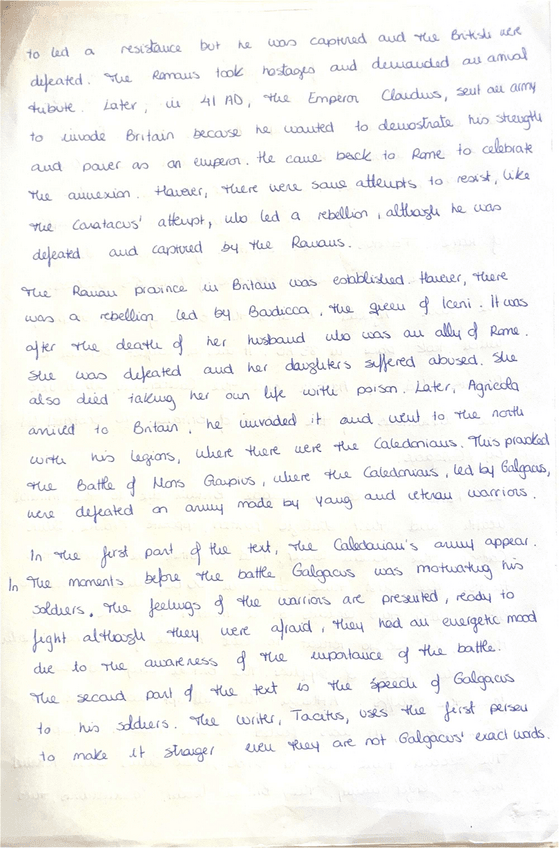 to led a resistance but he was captured and the British were
defeated. The Romans took hostages and demanded an annual
tribute. Later, in 41 AD, the Emperor Claudius, sent an army
to invade Britain because he wanted to demostrate his strength
and power as an emperor. He came back to Rome to celebrate
the annexion. However, there were some attempts to resist, like
the Caratacus' attempt, who led a rebellion, although he was
defeated and captured by the Romans.
The Roman province in Britain was established. However, there
was a rebellion led by Boudicca, the queen of Iceni. It was
after the death of her husband who was an ally of Rome.
She was defeated and her daughters suffered abused. She
also died taking her own life with poison. Later, Agricola
arrived to Britain, he invaded it and went to the north
with his legions, where there were the Caledonians. This provoked
the Battle of Mons Graupius, where the Caledonians, led by Galgacus,
were defeated on army made by young and veteran warriors.
In the first part of the text, the Caledonian's army appear.
In the moments before the battle Galgacus was motivating his
soldiers. The feelings of the warriors are presented, ready to
fight although they were afraid, they had an energetic mood
due to the awareness of the importance of the battle.
The second part of the text is the speech of Galgacus
to his soldiers. The writer, Tacitus, uses the first person
to make it stronger even they are not Galgacus' exact words.